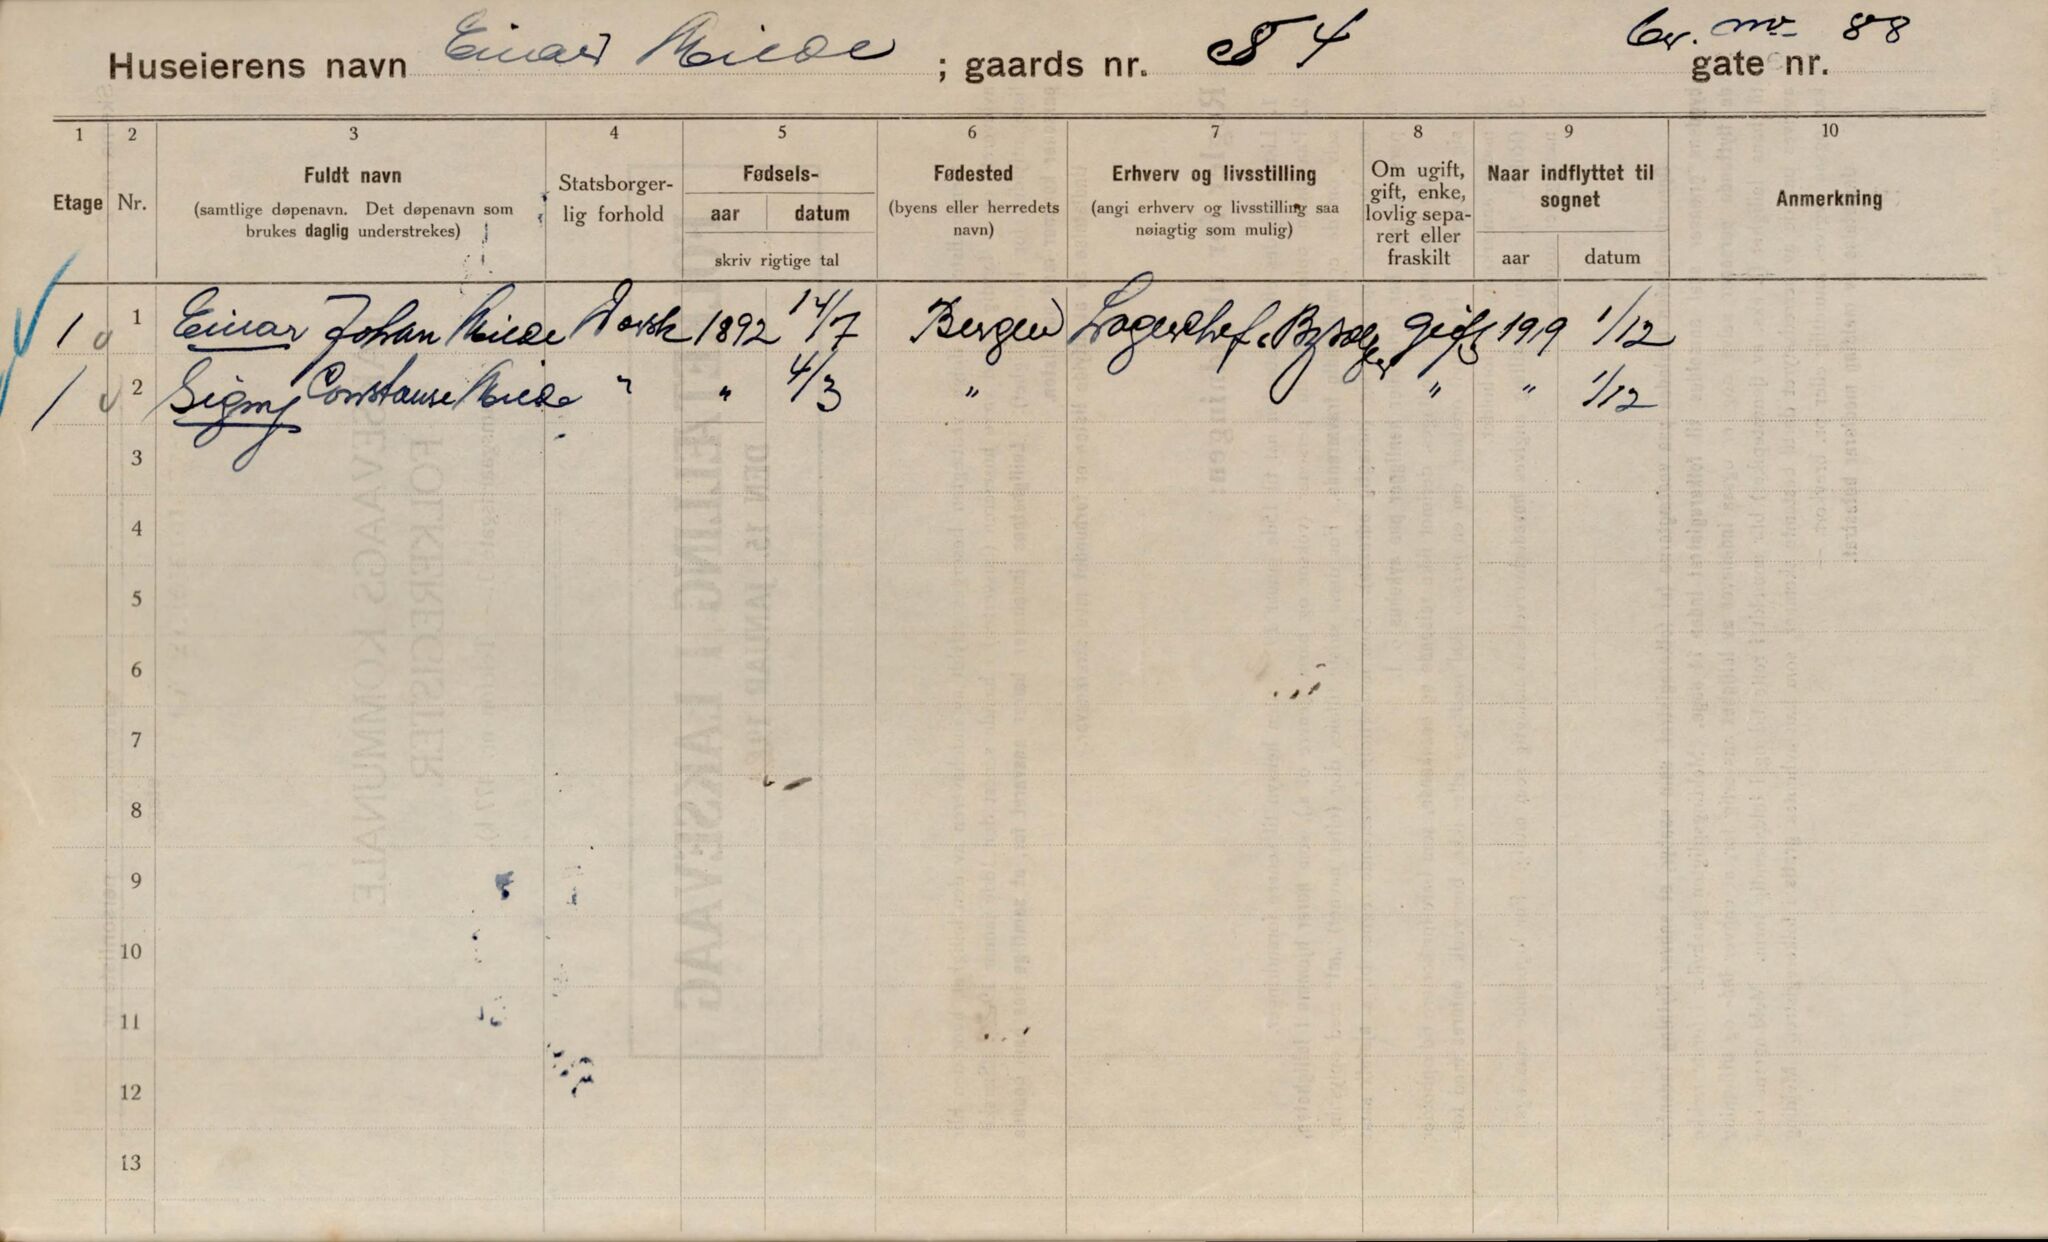 Huseierens navn Einar Milde ; gaards nr. 84 br. nr 88 gate nr.
1 2 3 4 5 6 7 8 9 10
Etage Nr. Fuldt navn (samtlige døpenavn. Det døpenavn som brukes daglig understrekes) Statsborgerlig forhold Fødsels- aar datum skriv rigtige tal Fødested (byens eller herredets navn) Erhverv og livsstilling (angi erhverv og livsstilling saa nøiagtig som mulig) Om ugift, gift, enke, lovlig separert eller fraskilt Naar indflyttet til sognet aar datum Anmerkning
1 1 Einar Johan Milde Norsk 1892 14/7 Bergen Lagerchef, gift 1919 1/12
1 2 Signy Constanse Milde " " 4/3 " " " 1/12
3
4
5
6
7
8
9
10
11
12
13